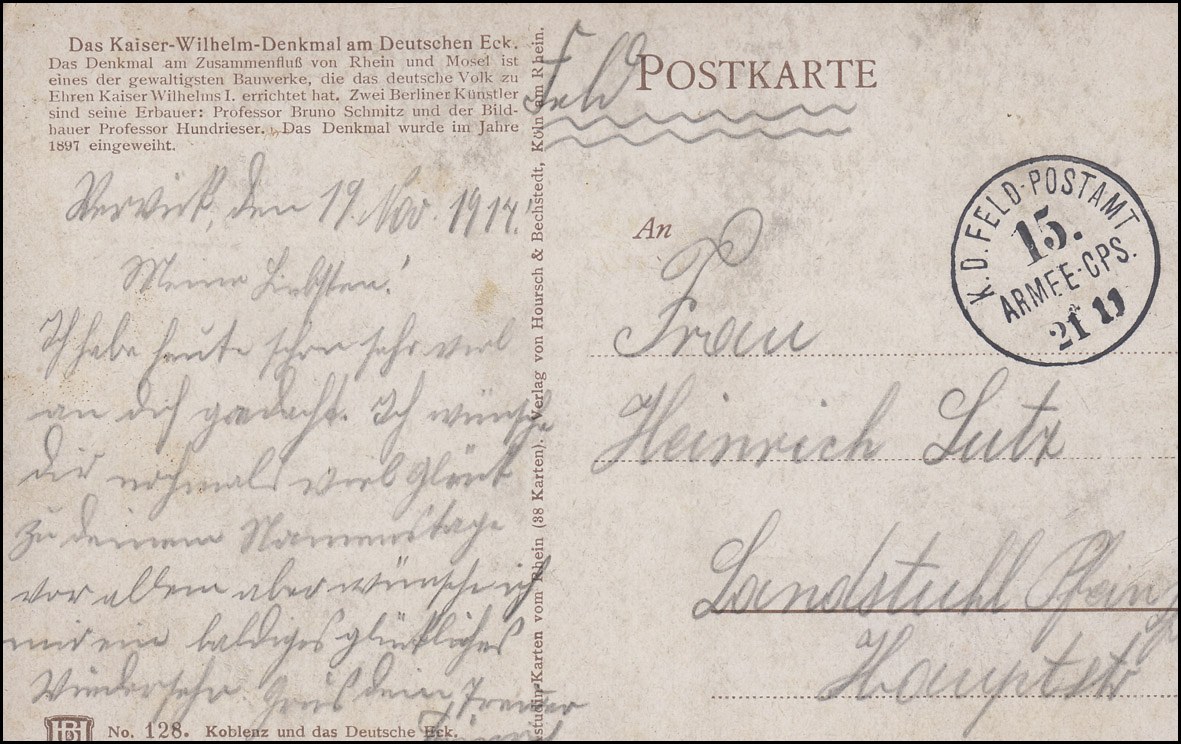 Das Kaiser-Wilhelm-Denkmal am Deutschen Eck.
Das Denkmal am Zusammenfluß von Rhein und Mosel ist
eines der gewaltigsten Bauwerke, die das deutsche Volk zu
Ehren Kaiser Wilhelms I. errichtet hat. Zwei Berliner Künstler
sind seine Erbauer: Professor Bruno Schmitz und der Bild-
hauer Professor Hundrieser. Das Denkmal wurde im Jahre
1897 eingeweiht.
Werwick, den 19. Nov. 1914.
Meine Liebsten!
Ich habe heute schon sehr viel
an dich gedacht. Ich wünsche
dir nochmals viel Glück
zu deinem Namenstage
vor allem aber wünsche ich
mir ein baldiges glückliches
Wiedersehn Grus dein Treuer
No. 128. Koblenz und das Deutsche Eck.
studin-Karten vom Rhein (38 Karten). Verlag von Hoursch & Bechstedt, Köln am Rhein.
Feld
POSTKARTE
K.D. FELD-POSTAMT
15.
ARMEE-CPS.
21 11
An
Frau
Heinrich Lutz
Landstuhl Pfalz
Hauptstr